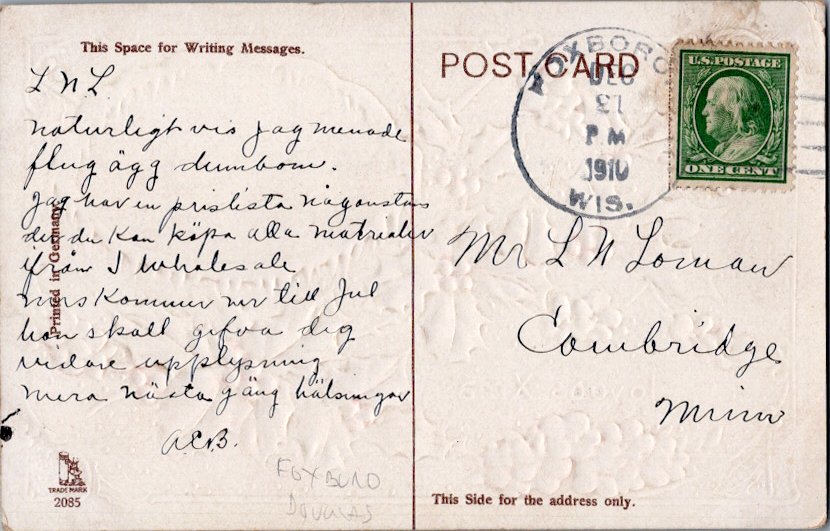 This Space for Writing Messages.
L N L
naturligt vis jag menade
flug ägg dumbom.
Jag har en prislista någonstans
der du kan köpa alla matrealier
ifrån I wholesale
kommer ner till Jul
han skall gifva dig
vidare upplysning
mera nästa gång hälsningar
A.E.B.
Printed in Germany.
TRADE MARK
2085
FOXBORO
DOUGLAS
POST CARD
FOXBORO
DEC
21
P M
1910
WIS.
U.S. POSTAGE
ONE CENT
Mr L N Loman
Cambridge
Minn
This Side for the address only.